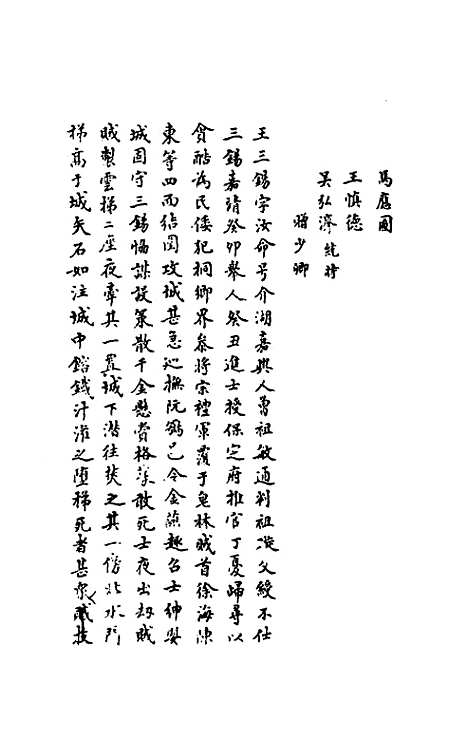 馬應國
王慎德
吴弘濟純将
贈少卿
王三錫字汝命号介湖嘉興人曾祖敏通判祖濙父綬不仕
三錫嘉靖癸卯舉人癸丑進士授保定府推官丁憂歸尋以
貪酷為民倭犯祠鄉界叅將宗禮軍覆于皂林賊首徐海陳
東等四面绐圍攻城甚急廵撫阮鶚已令金燕趣召士紳與
城固守三錫協謀設策散千金懸賞格募敢死士夜出刼賊
賊製雲梯二座夜牽其一置城下潜往焚之其一傍北水門
梯高于城矢石如注城中鎔鐵汁灌之堕梯死者甚衆賊技